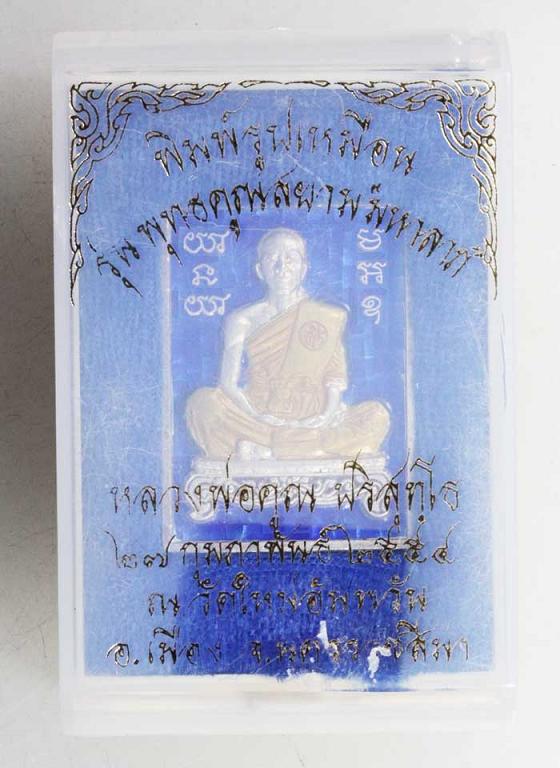 พิมพ์รูปเหมือน
รุ่น พุทธคุณสยามมหาลาภ
หลวงพ่อคูณ ปริสุทฺโธ
๒๗ กุมภาพันธ์ ๒๕๕๔
ณ วัดใหม่อัมพวัน
อ.เมือง จ.นครราชสีมา